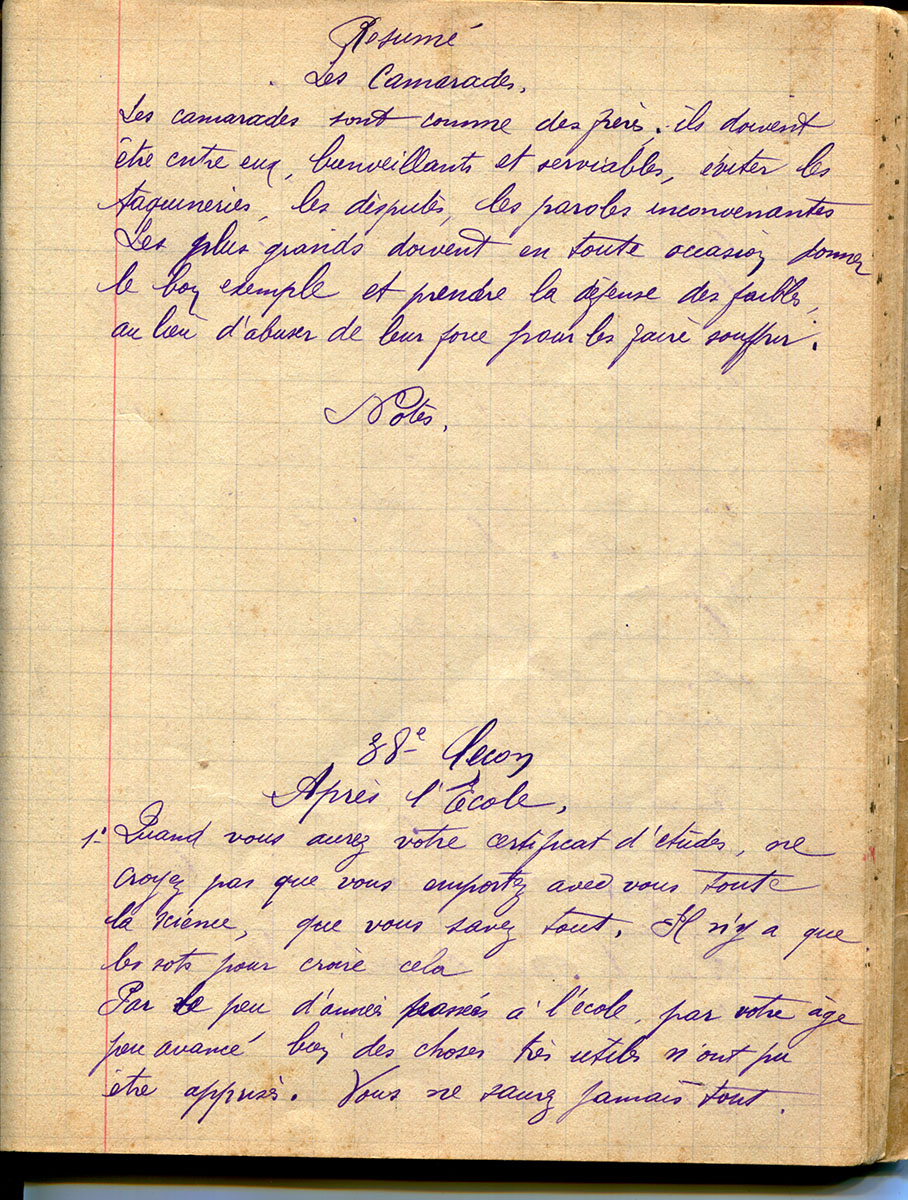 Resumé
Les Camarades.
Les camarades sont comme des frères. ils doivent
être entre eux, bienveillants et serviables, éviter les
taquineries, les disputes, les paroles inconvenantes
Les plus grands doivent en toute occasion donner
le bon exemple et prendre la défense des faibles,
au lieu d'abuser de leur force pour les faire souffrir.
Notes.
38e leçon
Après l'École.
1º Quand vous aurez votre certificat d'études, ne
croyez pas que vous emportez avec vous toute
la science, que vous savez tout. Il n'y a que
les sots pour croire cela
Par le peu d'années passées à l'école, par votre âge
peu avancé bien des choses très utiles n'ont pu
être apprises. Vous ne saurez jamais tout.